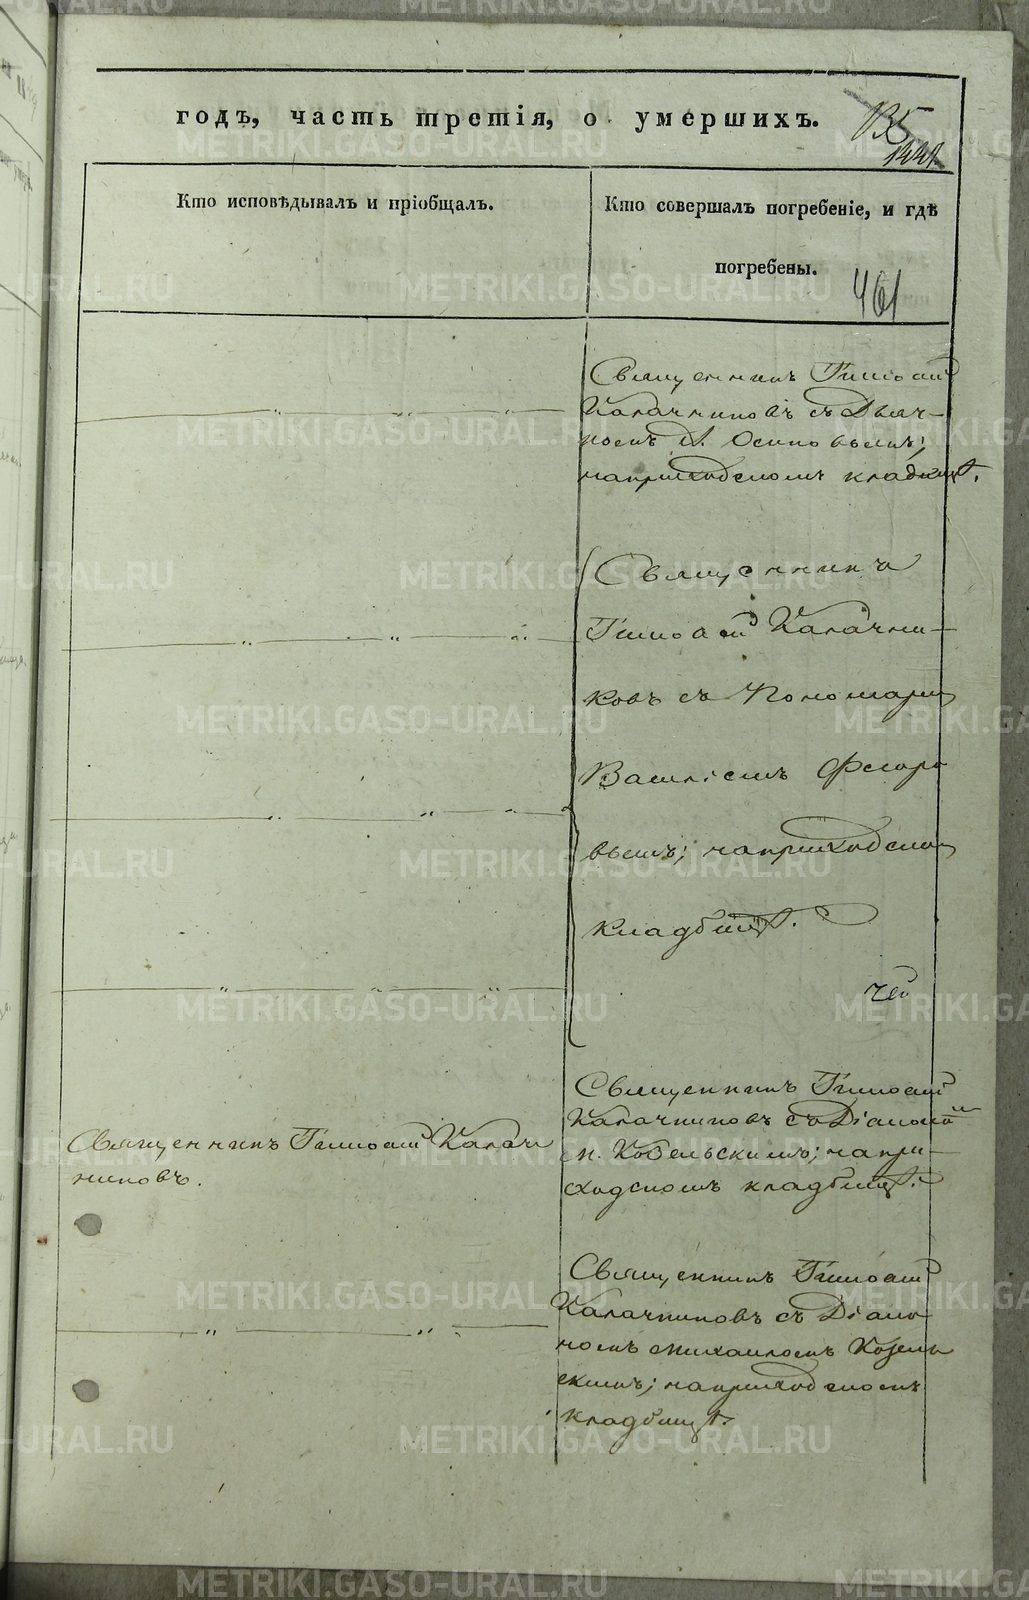 годъ, часть третія, о умершихъ.
135
Кто исповѣдывалъ и пріобщалъ.
Кто совершалъ погребеніе, и гдѣ
погребены.
461
Священникъ Тимофей
Калачниковъ съ Дьяч-
комъ Осиповымъ;
наприходскомъ кладбищѣ.
Священникъ
Тимофей Калачни-
ковъ съ Пономаремъ
Василіемъ Флоро
вымъ; наприходскомъ
кладбищѣ.
Священникъ Тимофей
Калачниковъ съ Діакономъ
М. Кобельскимъ; напри-
ходскомъ кладбищѣ.
Священникъ Тимофей Калач
никовъ.
Священникъ Тимофей
Калачниковъ съ Діако
номъ Михаиломъ
скимъ; наприходскомъ
кладбищѣ.
METRIKI.GASO-URAL.RU